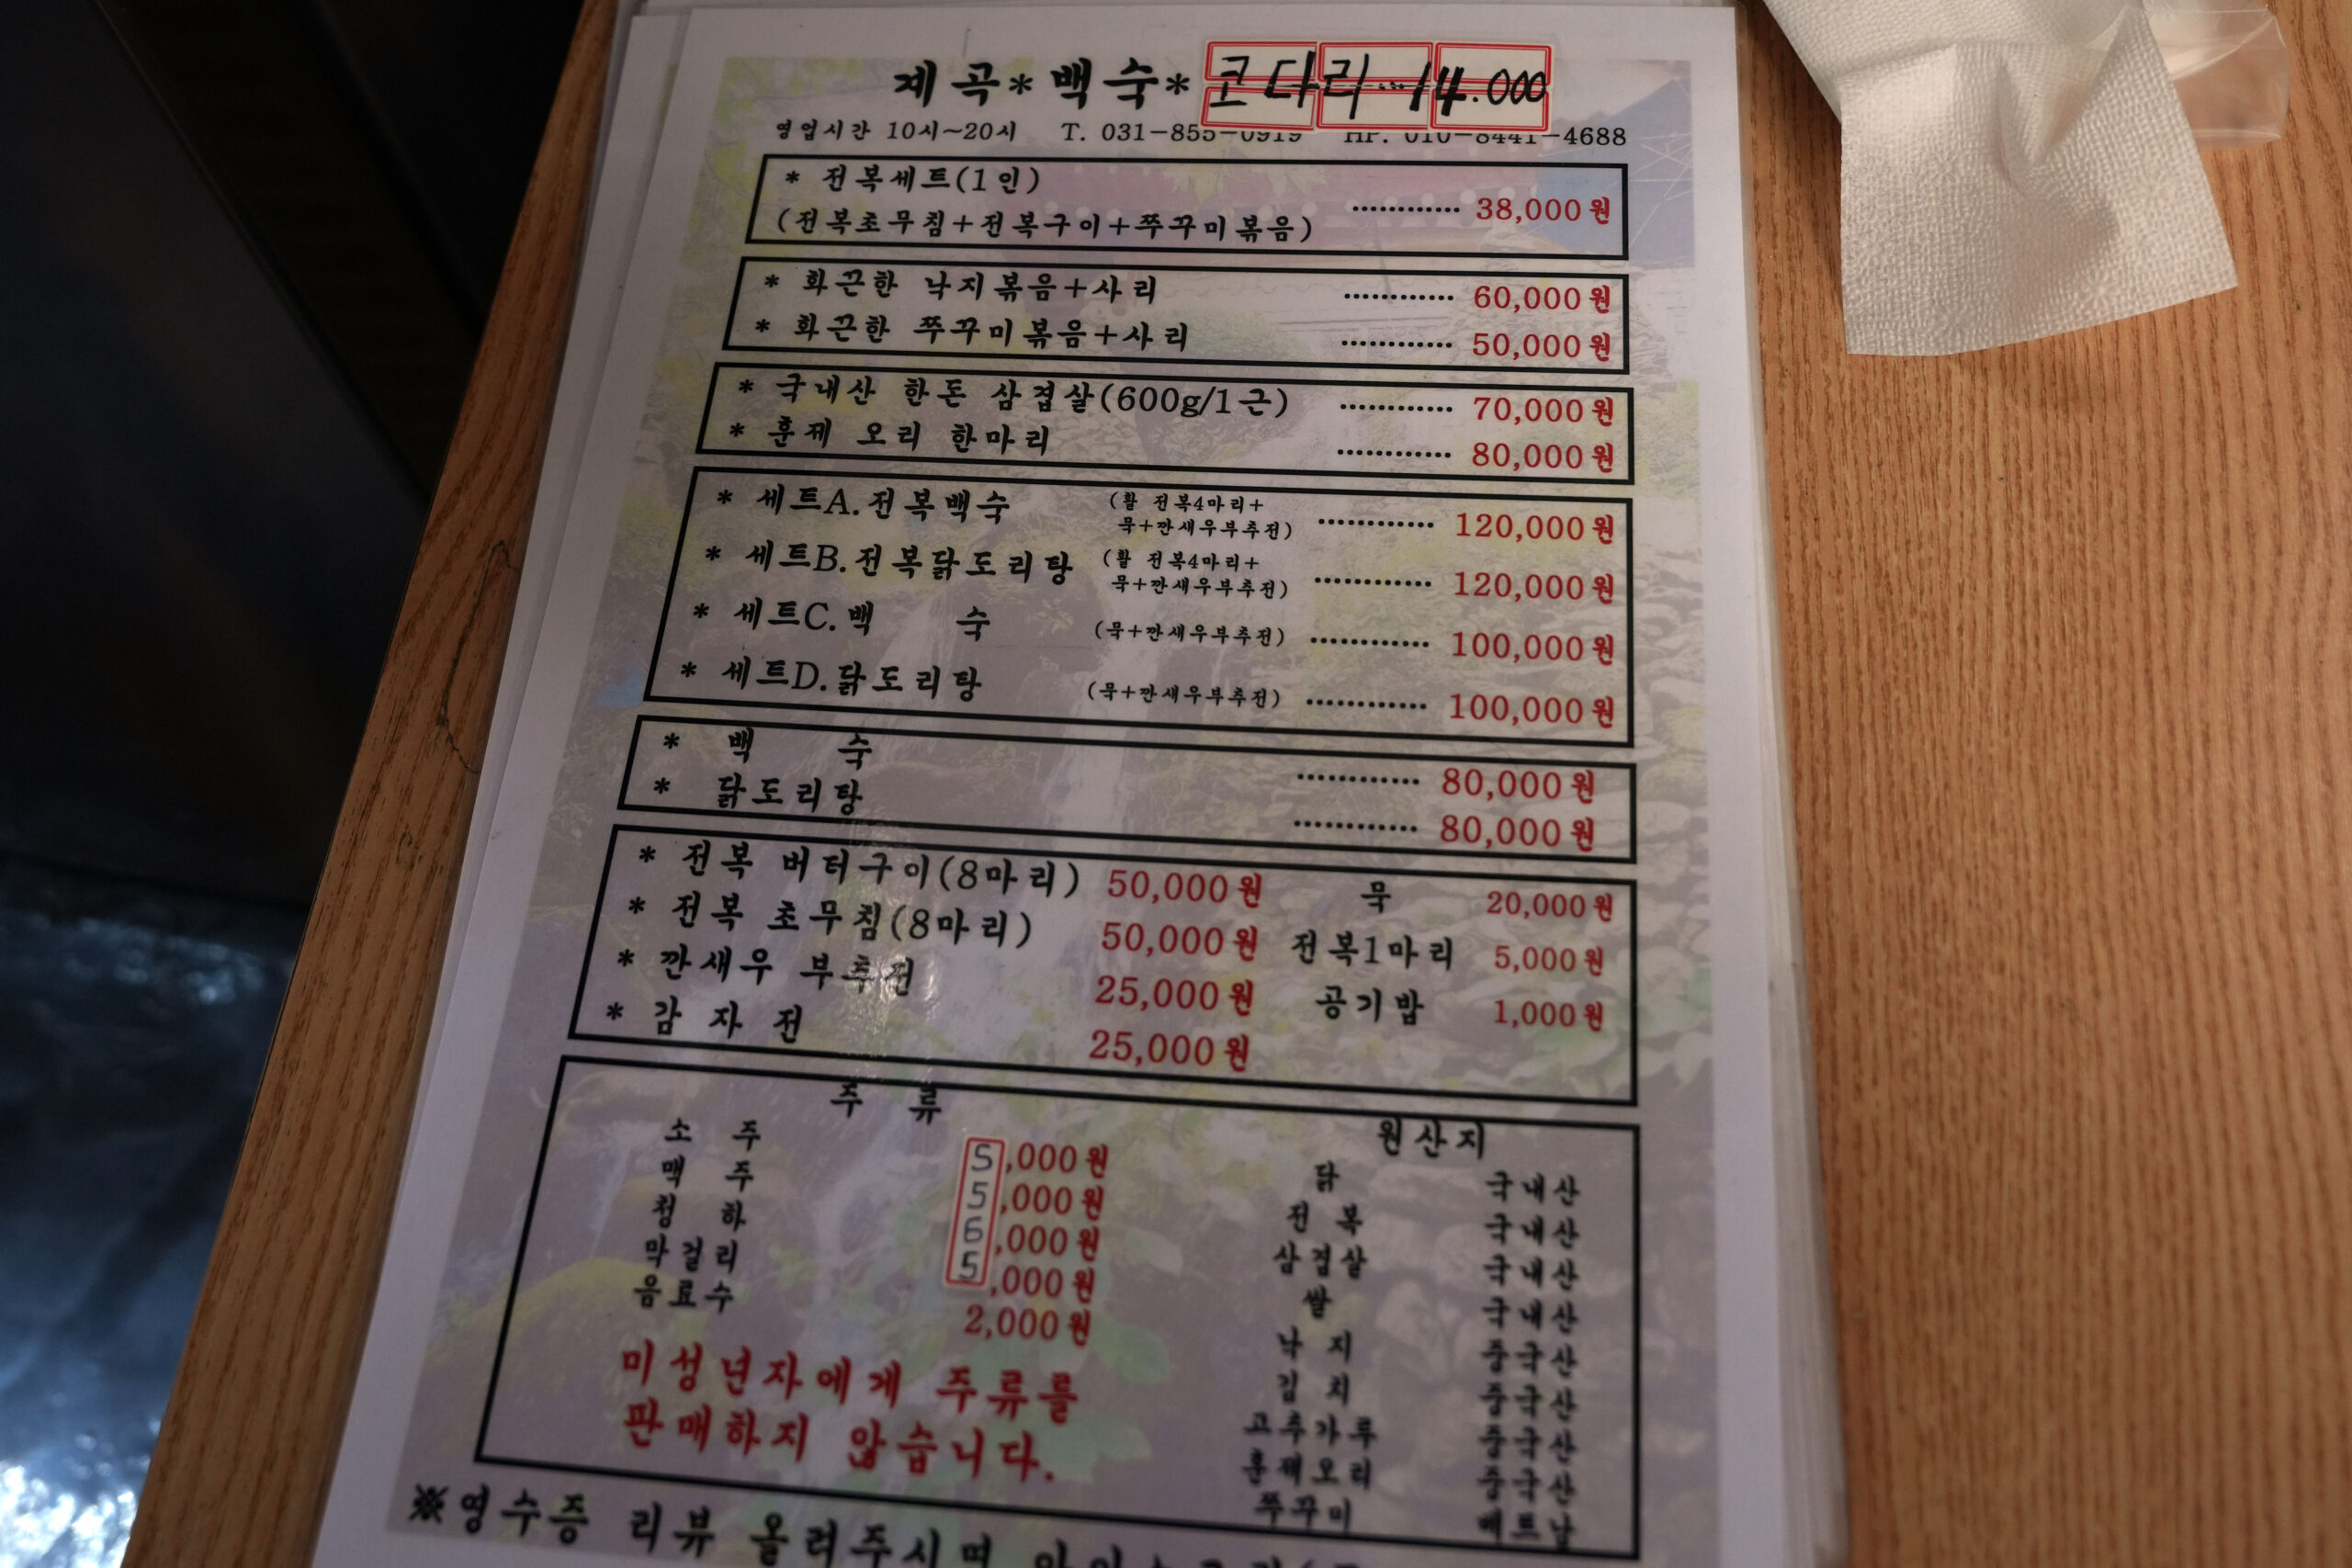 계곡*백숙* 코다리...14.000
영업시간 10시~20시 T. 031-855-0919 HP. 010-8441-4688
* 전복세트(1인)
(전복초무침+전복구이+쭈꾸미볶음) ············ 38,000원
* 화끈한 낙지볶음+사리 ············ 60,000원
* 화끈한 쭈꾸미볶음+사리 ············ 50,000원
* 국내산 한돈 삼겹살(600g/1근) ············ 70,000원
* 훈제 오리 한마리 ············ 80,000원
* 세트A.전복백숙 (활 전복4마리+
묵+깐새우부추전) ············ 120,000원
* 세트B.전복닭도리탕 (활 전복4마리+
묵+깐새우부추전) ············ 120,000원
* 세트C.백 숙 (묵+깐새우부추전) ············ 100,000원
* 세트D.닭도리탕 (묵+깐새우부추전) ············ 100,000원
* 백 숙 ············ 80,000원
* 닭도리탕 ············ 80,000원
* 전복 버터구이(8마리) 50,000원 묵 20,000원
* 전복 초무침(8마리) 50,000원 전복1마리 5,000원
* 깐새우 부추전 25,000원 공기밥 1,000원
* 감 자 전 25,000원
주 류
소 주 5,000원
맥 주 5,000원
청 하 6,000원
막걸리 5,000원
음료수 2,000원
미성년자에게 주류를
판매하지 않습니다.
원산지
닭 국내산
전 복 국내산
삼겹살 국내산
쌀 국내산
낙 지 중국산
김 치 중국산
고추가루 중국산
훈제오리 중국산
쭈꾸미 베트남
※영수증 리뷰 올려주시면